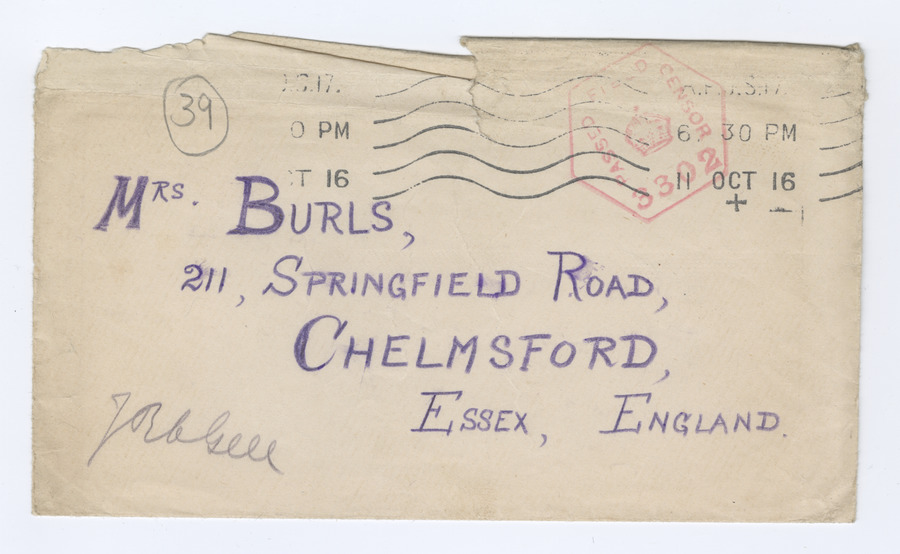 39
.S.17.
0 PM
T 16
6 30 PM
11 OCT 16
PASSED FIELD CENSOR
3302
Mrs. Burls,
211, Springfield Road,
Chelmsford,
Essex, England.